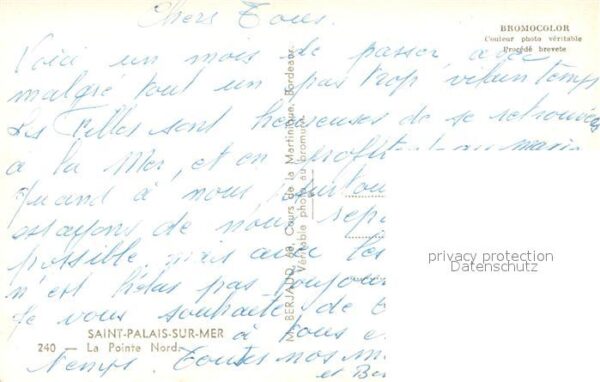 Chers Tous.
BROMOCOLOR
Couleur photo véritable
Procédé breveté
Voici un mois de passer avec
malgré tout un pas trop vilain temps
Les Filles sont heureuses de se retrouvées
a la Mer, et en profitent au
Quand à nous
essayons de nous
possible mais avec les
n'est hélas pas toujours
Je vous souhaite de
à tous
temps. Toutes nos
et Ber
M. BERJAUD, 68, Cours de la Martinique, Bordeaux
Véritable photo au bromure
privacy protection
Datenschutz
SAINT-PALAIS-SUR-MER
240 — La Pointe Nord.